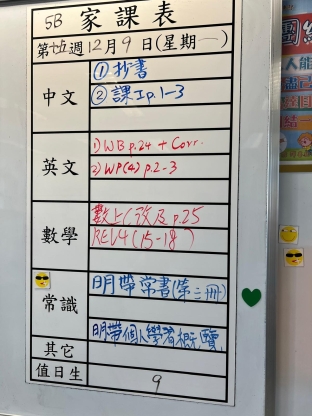 5B 家課表
第十五週12月9日(星期一)
中文
① 抄書
② 課工p.1-3
英文
1) WB p.24 + Corr.
2) WP(4) p.2-3
數學
數上(改及p.25
REV4 (15-18)
常識
明帶常書(第三冊)
明帶個人學習概覽
其它
值日生
9
人能